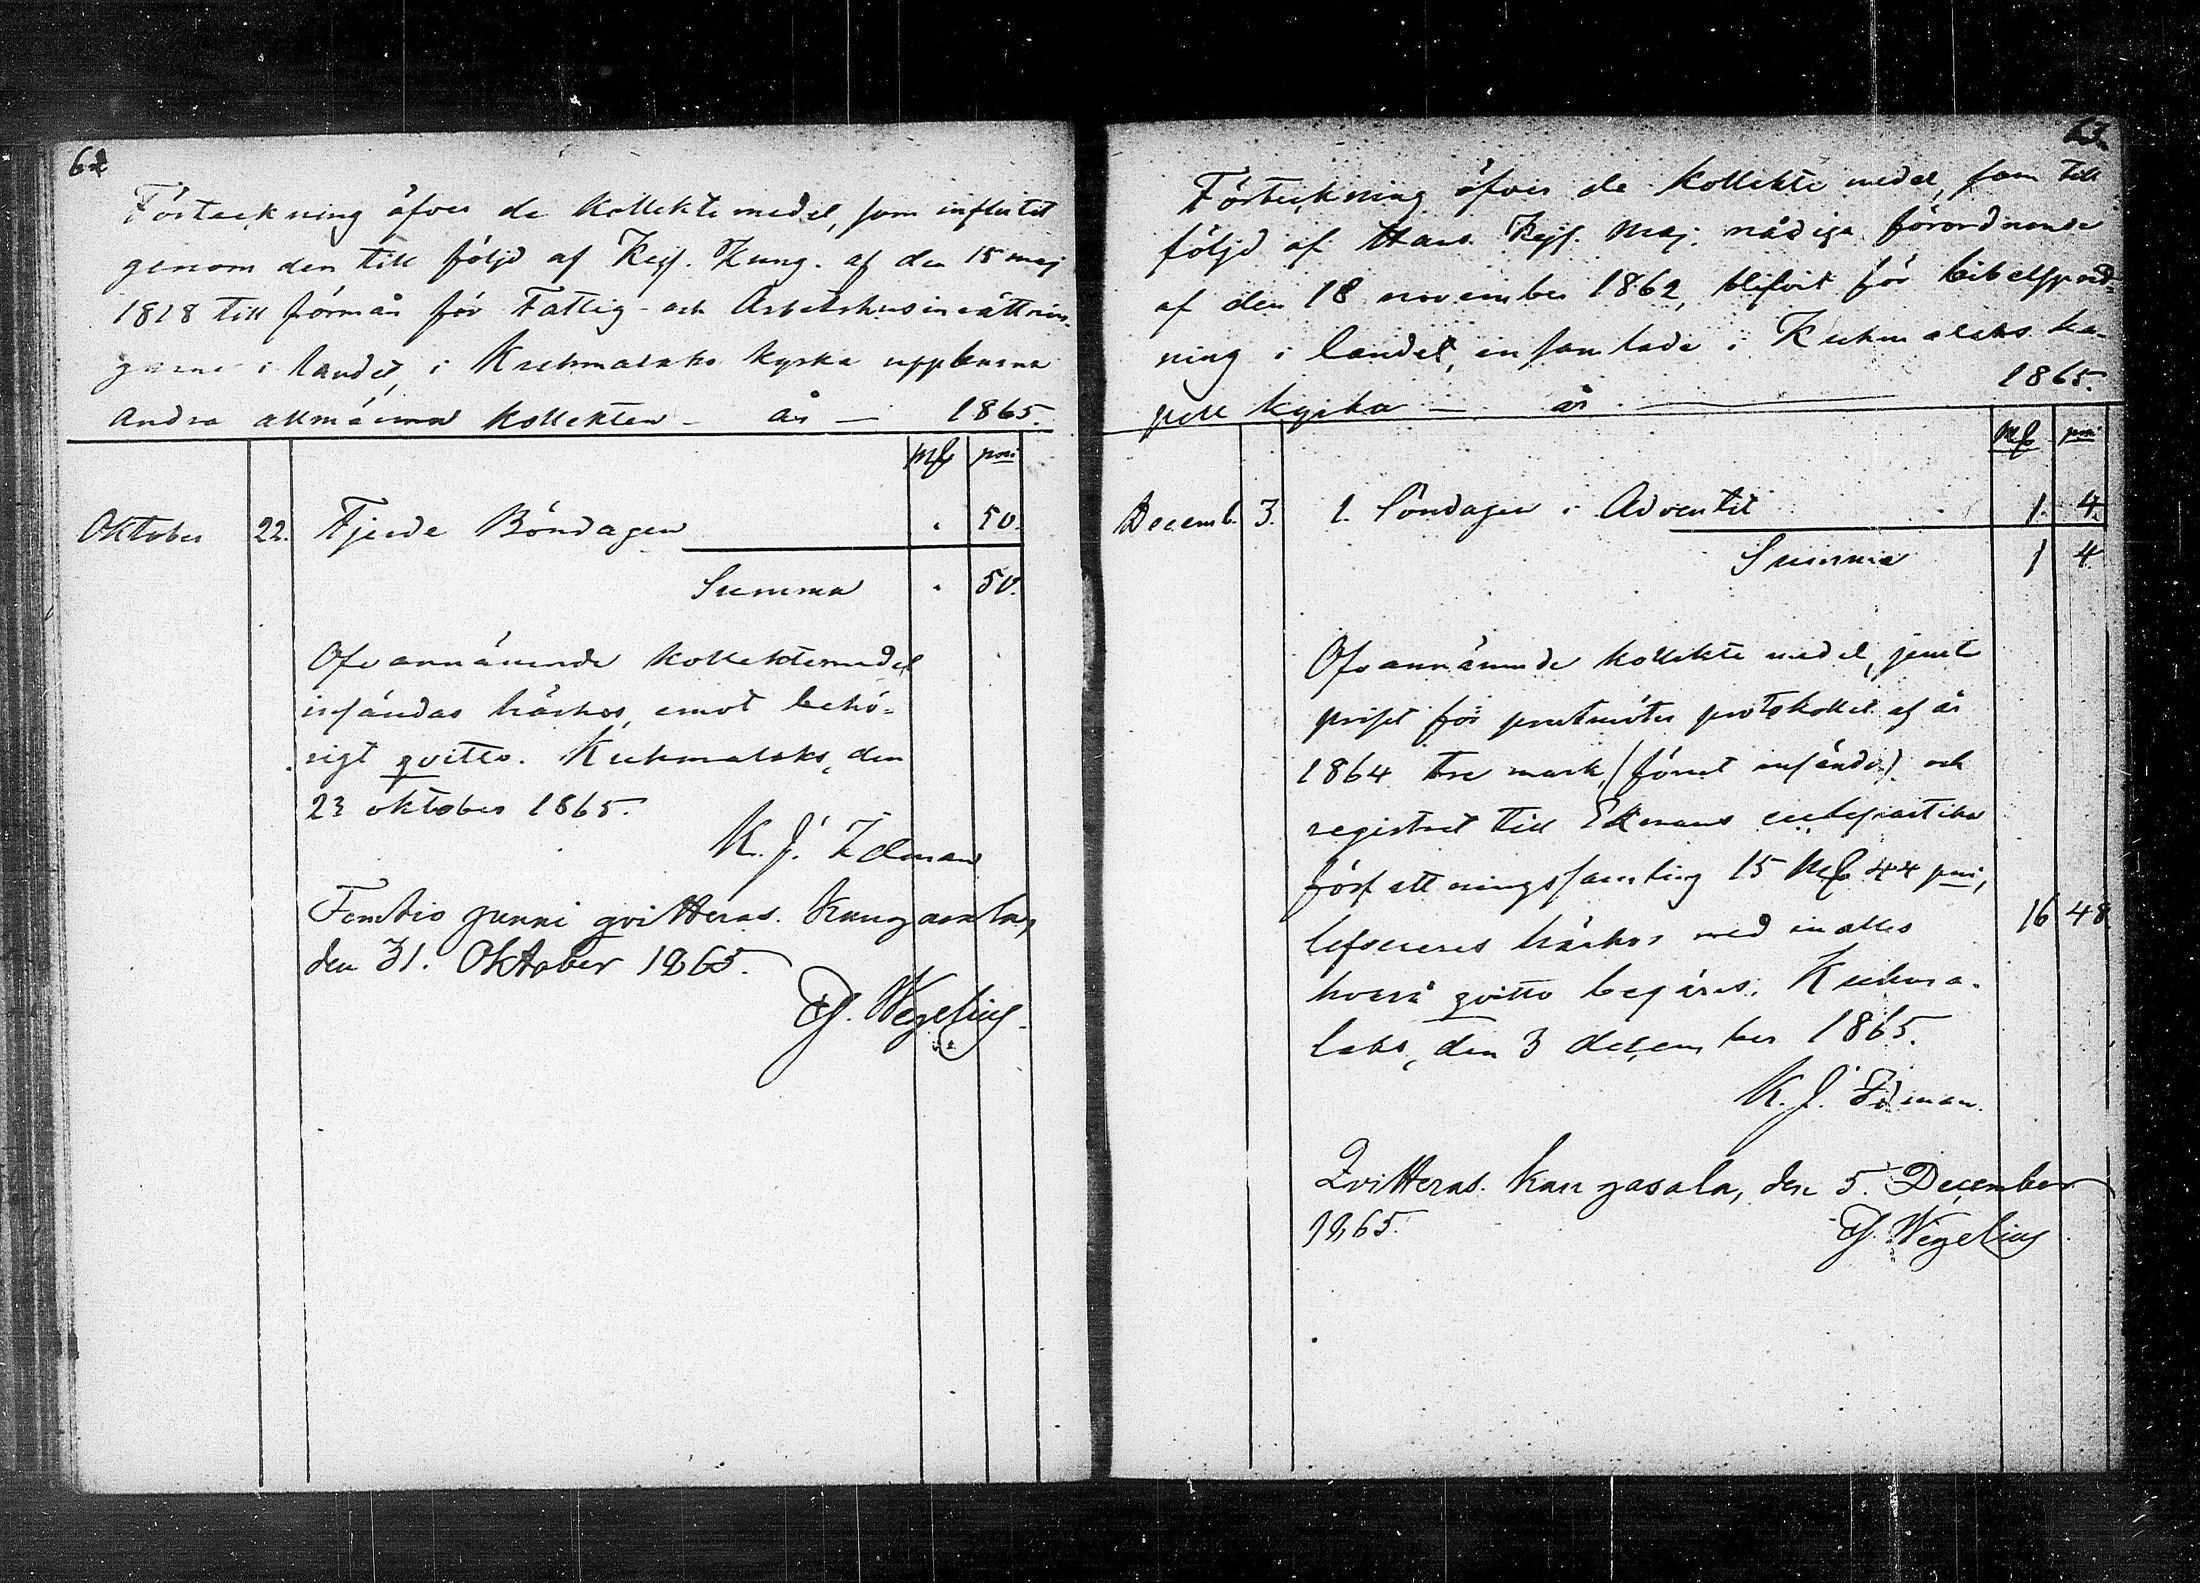 62
Förteckning öfver de Kollektemedel, som influtit
genom den till följd af Kejs. Kung. af den 15 maj
1818 till förmån för Fattig- och Arbetshusinrättnin-
garne i landet, i Kuhmalaks kyrka uppburna
andra allmänna kollekten - år - 1865.
Mk pni
Oktober 22. Fjerde Böndagen " 50.
Summa " 50.
Ofvannämnde kollektemedel
insändas härhos, emot behö-
rigt qvitto. Kuhmalaks, den
23 oktober 1865.
K. J. Idman
Femtio penni qvitteras. Kangasala,
den 31. Oktober 1865.
Wegelius
63.
Förteckning öfver de Kollekte medel, som till
följd af Hans Kejs. Maj. nådiga förordnande
af den 18 november 1862, blifvit för bibelsprid-
ning i landet, insamlade i Kuhmalaks ka-
pell kyrka - år - 1865.
Mk pni
Decemb. 3. 1. Söndagen i Adventet 1. 4.
Summa 1 4
Ofvannämnde kollekte medel, jemte
priset för prestmötes protokollet af år
1864 tre mark, (förut insända) och
registret till Ekmans ecclesiastika
författningssamling 15 Mk 44 pni,
lefvereres härhos med inalles 16 48
hvarå qvitto begäres. Kuhma-
laks, den 3 december 1865.
K. J. Idman.
Qvitteras. Kangasala, den 5. December
1865.
Wegelius